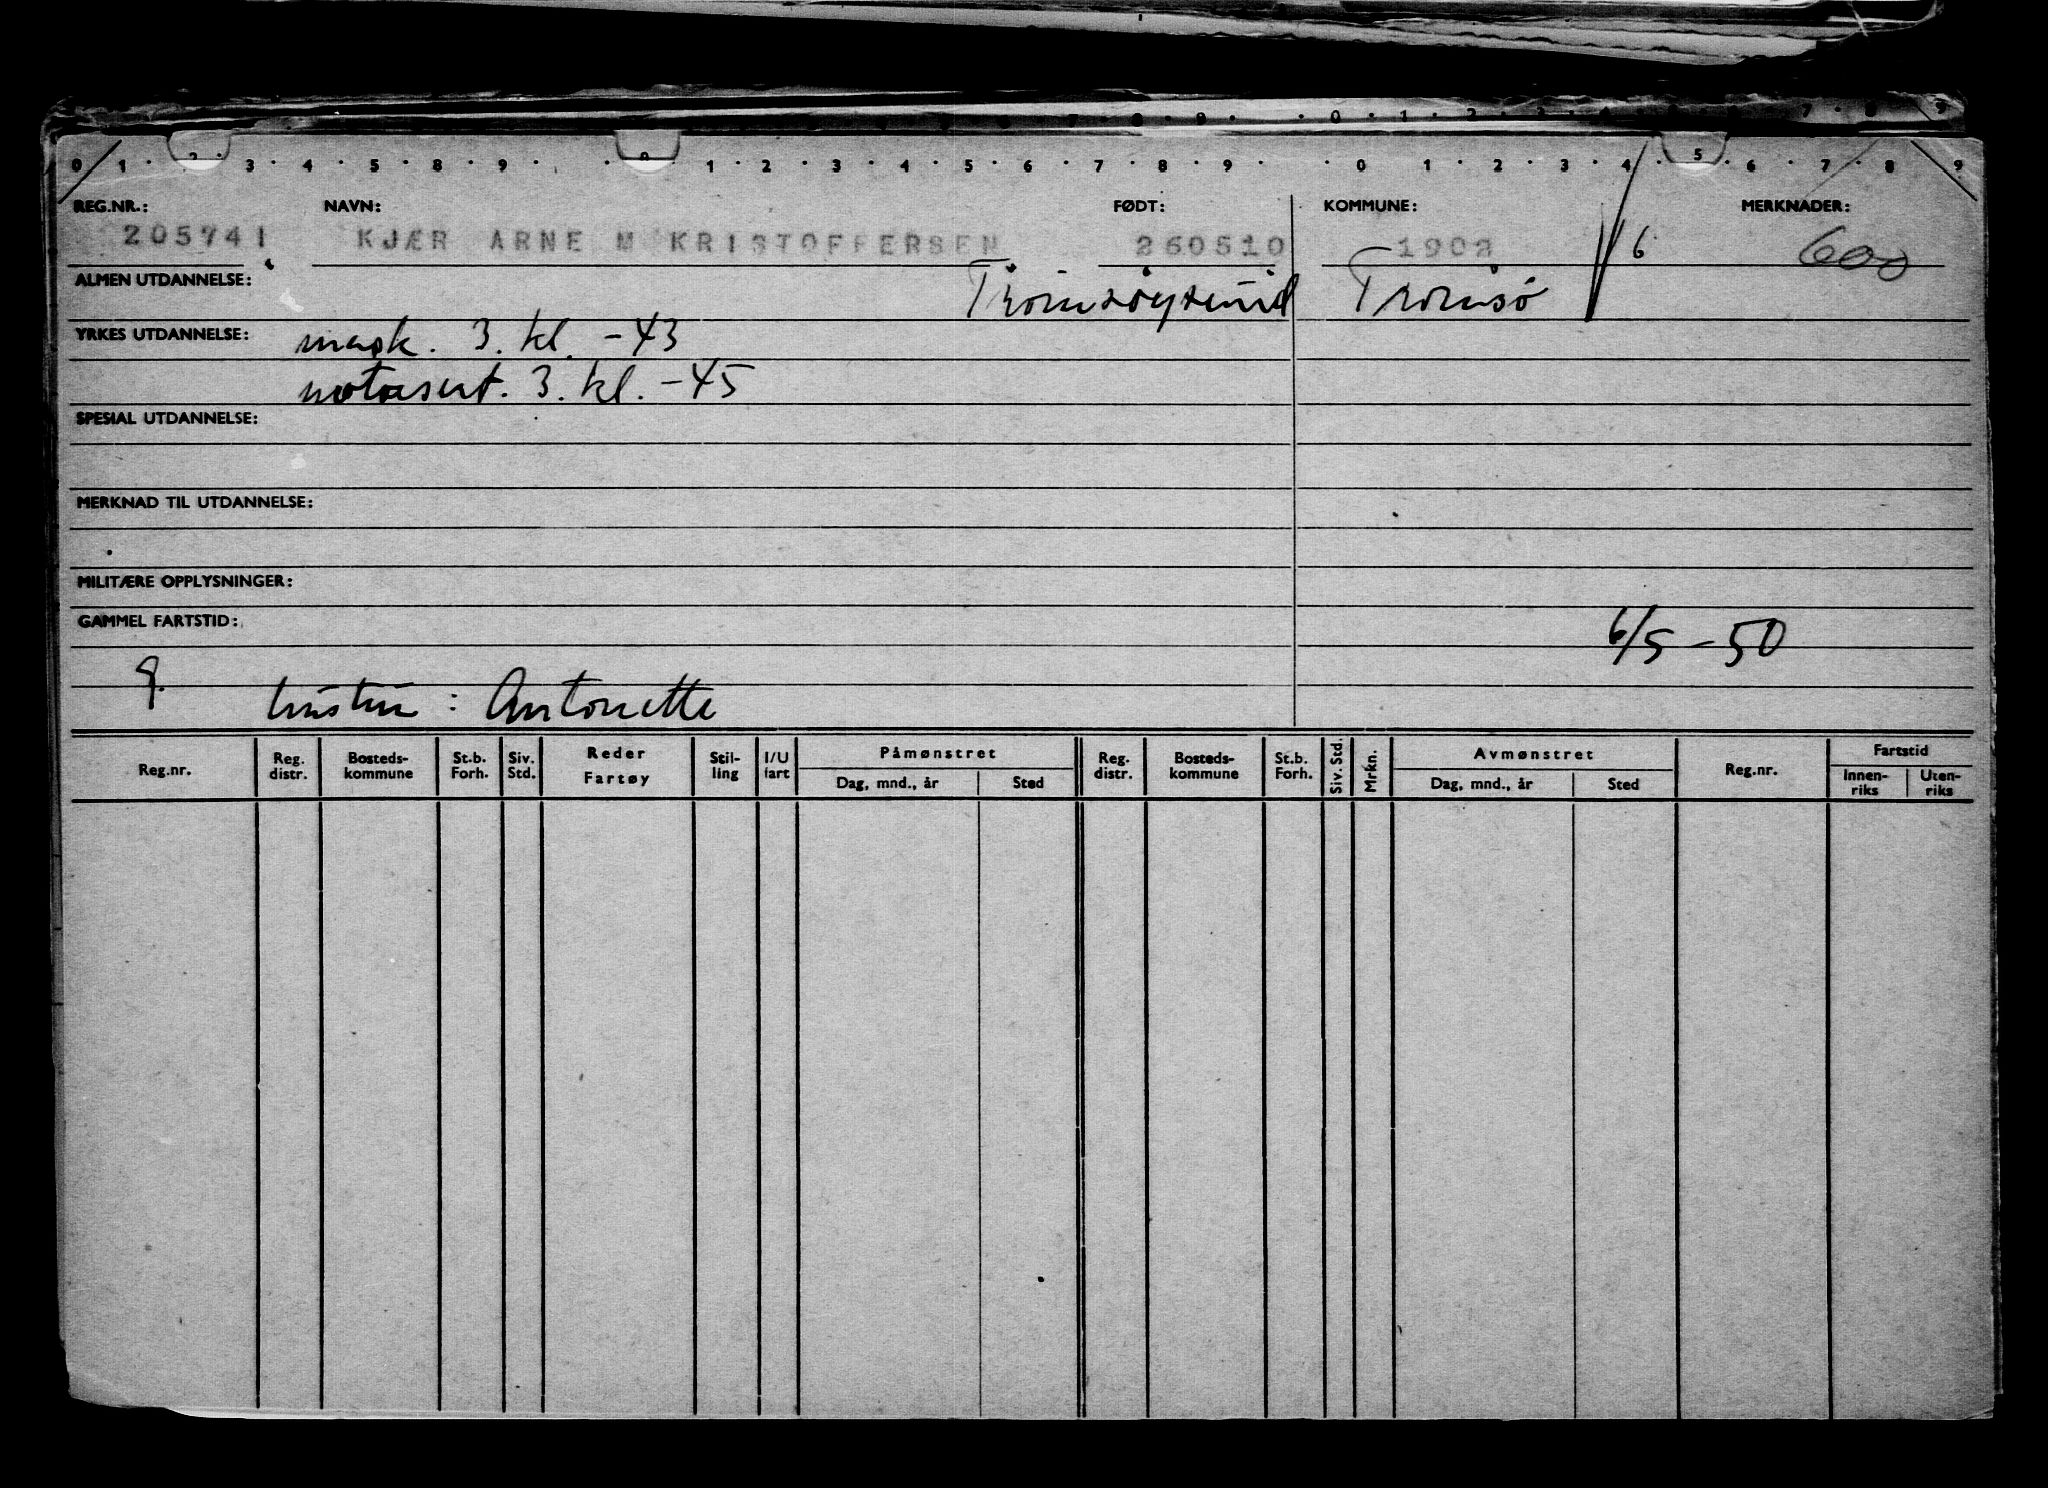 0 1 . 2 . 3 . 4 . 5 . 8 . 9 . . 0 . 1 . 2 . 3 . 4 . 5 . 6 . 7 . 8 . 9 . . 0 . 1 . 2 . 3 . 4 . 5 . 6 . 7 . 8 . 9
REG.NR.: NAVN: FØDT: KOMMUNE: MERKNADER:
205741 KJÆR ARNE M KRISTOFFERSEN 260510 1902 6 600
ALMEN UTDANNELSE: Tromsøysund Tromsø
YRKES UTDANNELSE: mask. 3. kl. -43
motorsert. 3. kl. -45
SPESIAL UTDANNELSE:
MERKNAD TIL UTDANNELSE:
MILITÆRE OPPLYSNINGER:
GAMMEL FARTSTID: 6/5 - 50
g. hustru : Antonette
Reg.nr. Reg. distr. Bosteds-kommune St.b. Forh. Siv. Std. Reder Fartøy Stil-ling I/U fart Påmønstret Dag, mnd., år Sted Reg. distr. Bosteds-kommune St.b. Forh. Siv. Std. Mrkn. Avmønstret Dag, mnd., år Sted Reg.nr. Fartstid Innen-riks Uten-riks